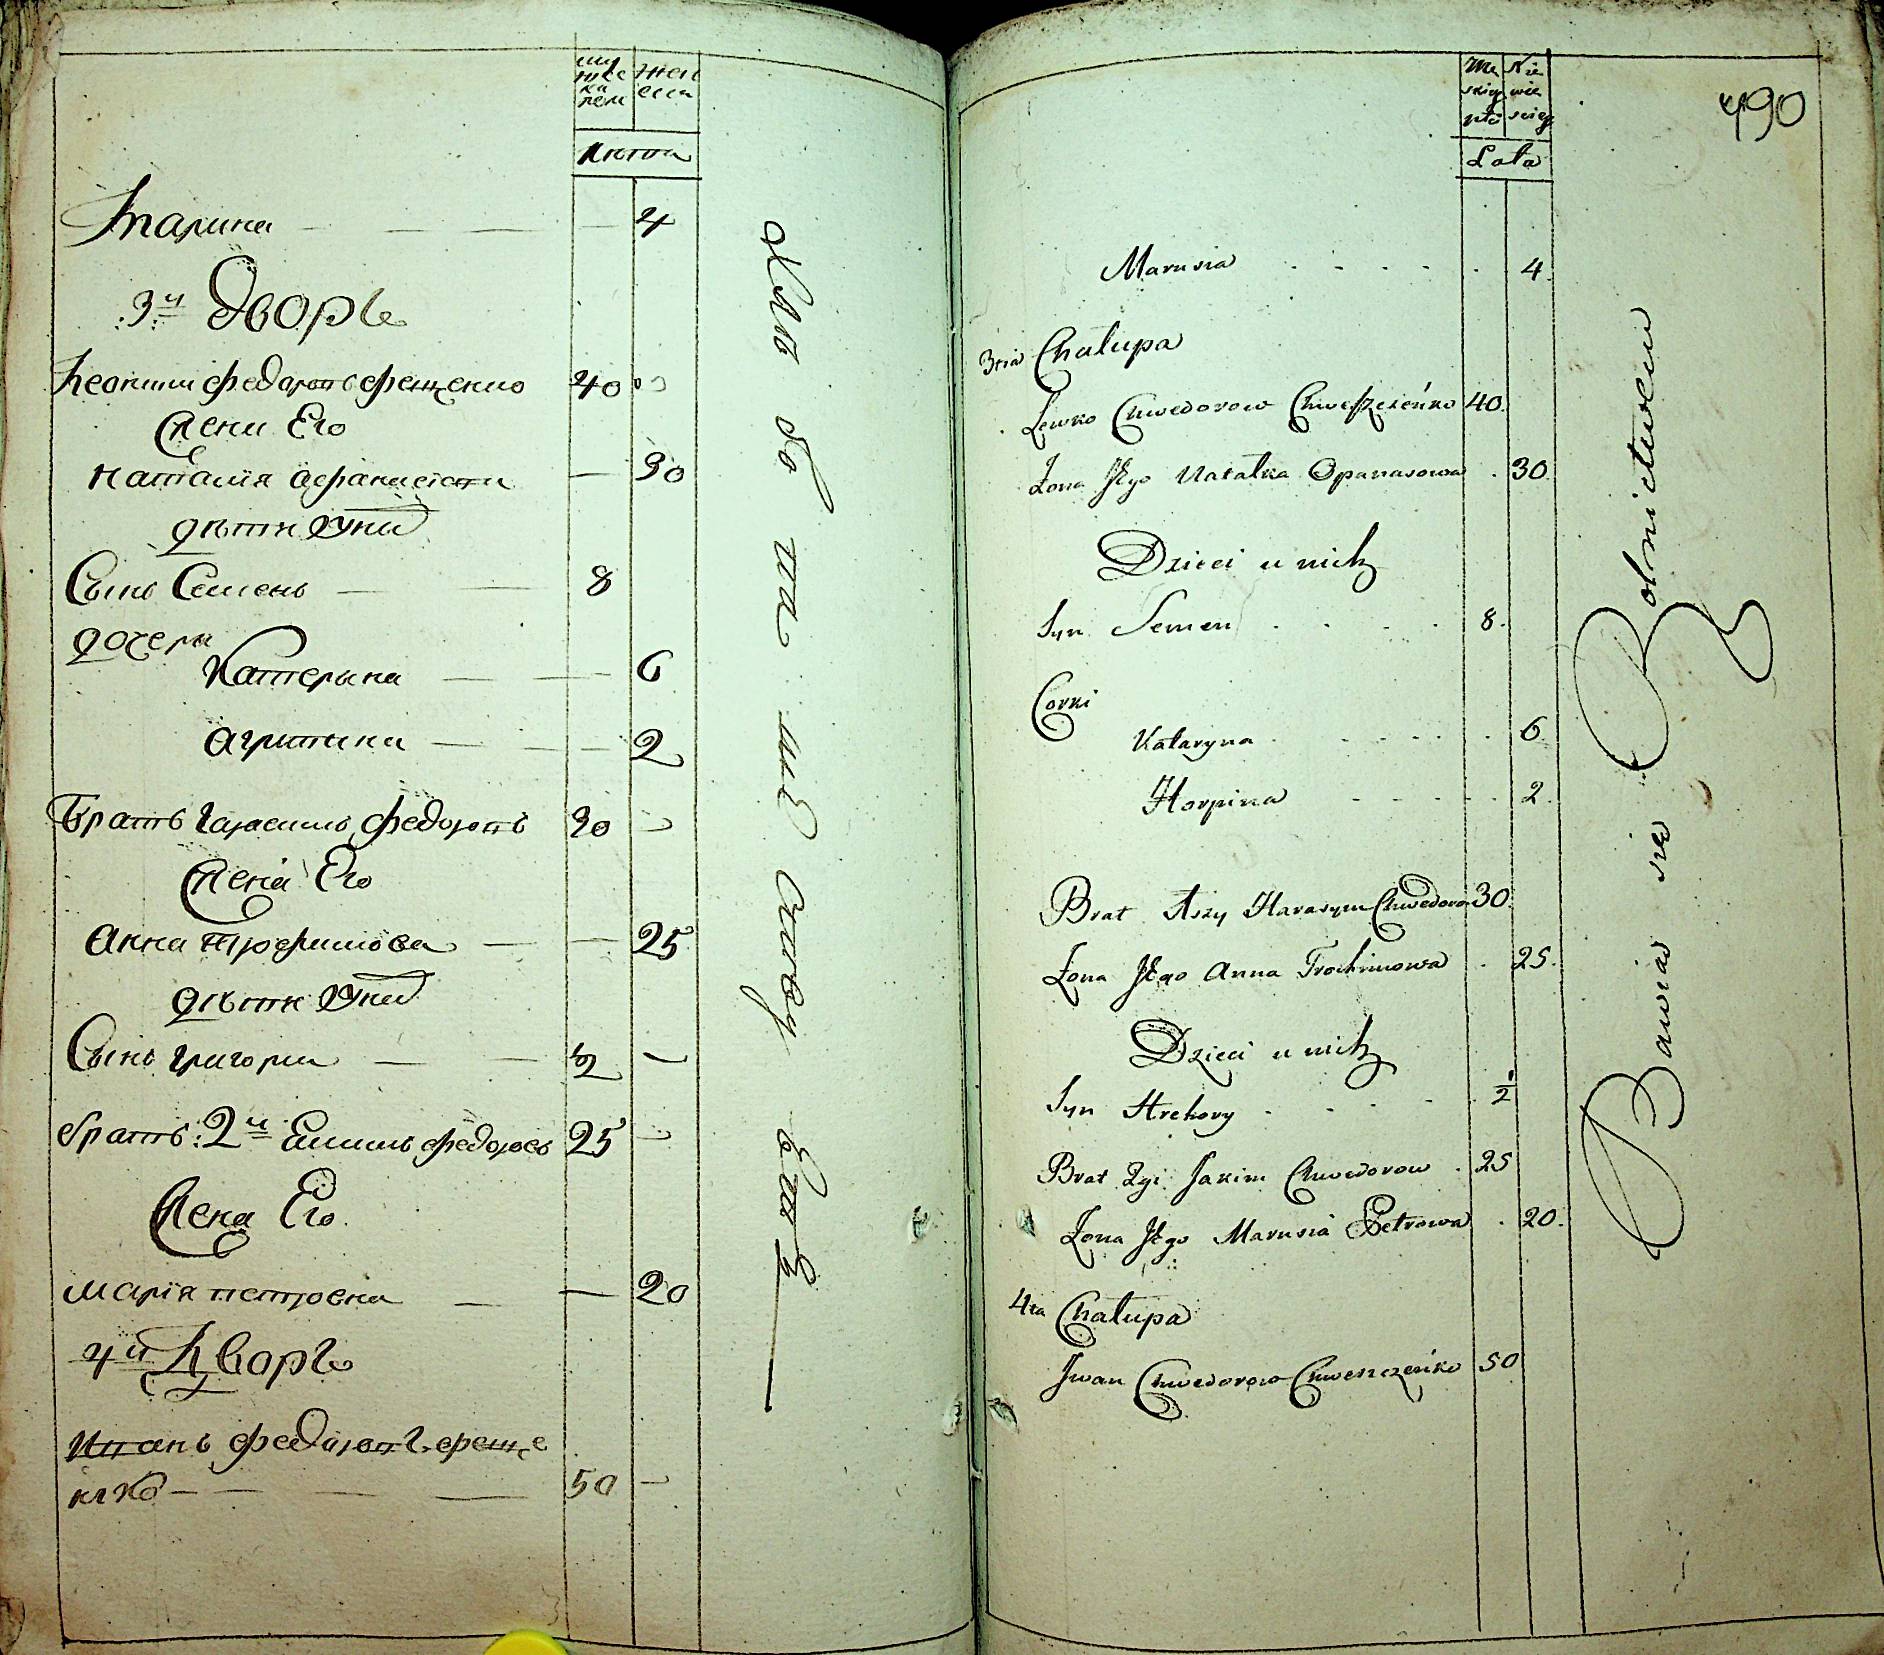 Марина 4
3й Дворъ
Федоровъ Фещенко 40
Жена Его
Наталия Афанасиева 30
Дѣти У них
Сынъ Семенъ 8
Дочери
Катерына 6
Агрипина 2
Братъ Гарасимъ Федоровъ 30
Жена Его
Анна Трофимова 25
Дѣти У них
Сынъ Григори ½
братъ 2й Екимъ Федоровъ 25
Жена Его
Мария Петровна 20
4й Дворъ
Иванъ Федоровъ Феще
нко 50
Хлебопашествуетъ
490
Męskiey płci
Niewieściey
Lata
Marusia 4
3cia Chałupa
Lewko Chwedorow Chweszczeńko 40
Żona Jego Natalka Opanasowa 30
Dzieci u nich
Syn Semen 8
Corki
Kataryna 6
Horpina 2
Brat 1szy Harasym Chwedorow 30
Żona Jego Anna Trochimowa 25
Dzieci u nich
Syn Hrehory ½
Brat 2gi Jakim Chwedorow 25
Żona Jego Marusia Petrowa 20
4ta Chałupa
Iwan Chwedorow Chweszczeńko 50
Bawia się Rolnictwem